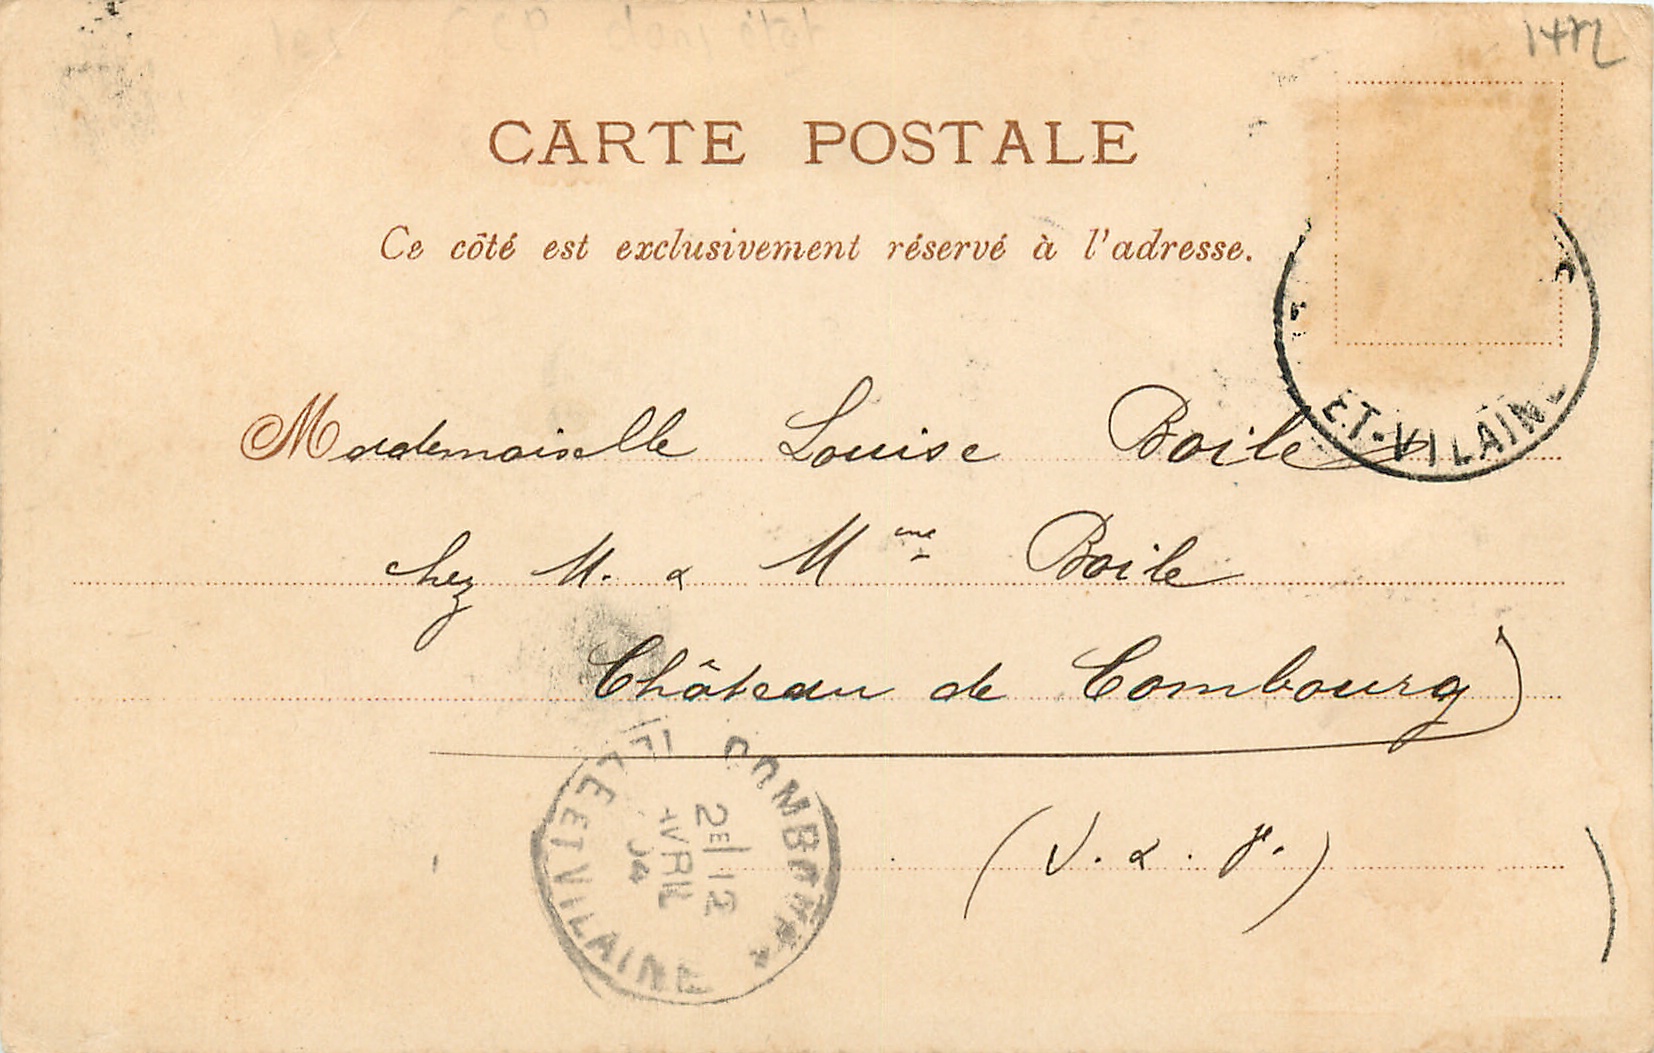 CARTE POSTALE
Ce côté est exclusivement réservé à l'adresse.
Mademoiselle Louise Boile
chez M. & Mme Boile
Château de Combourg
(I. & V.)
ET-VILAINE
COMBOURG
ILLE ET VILAINE
2E 12
AVRIL
04